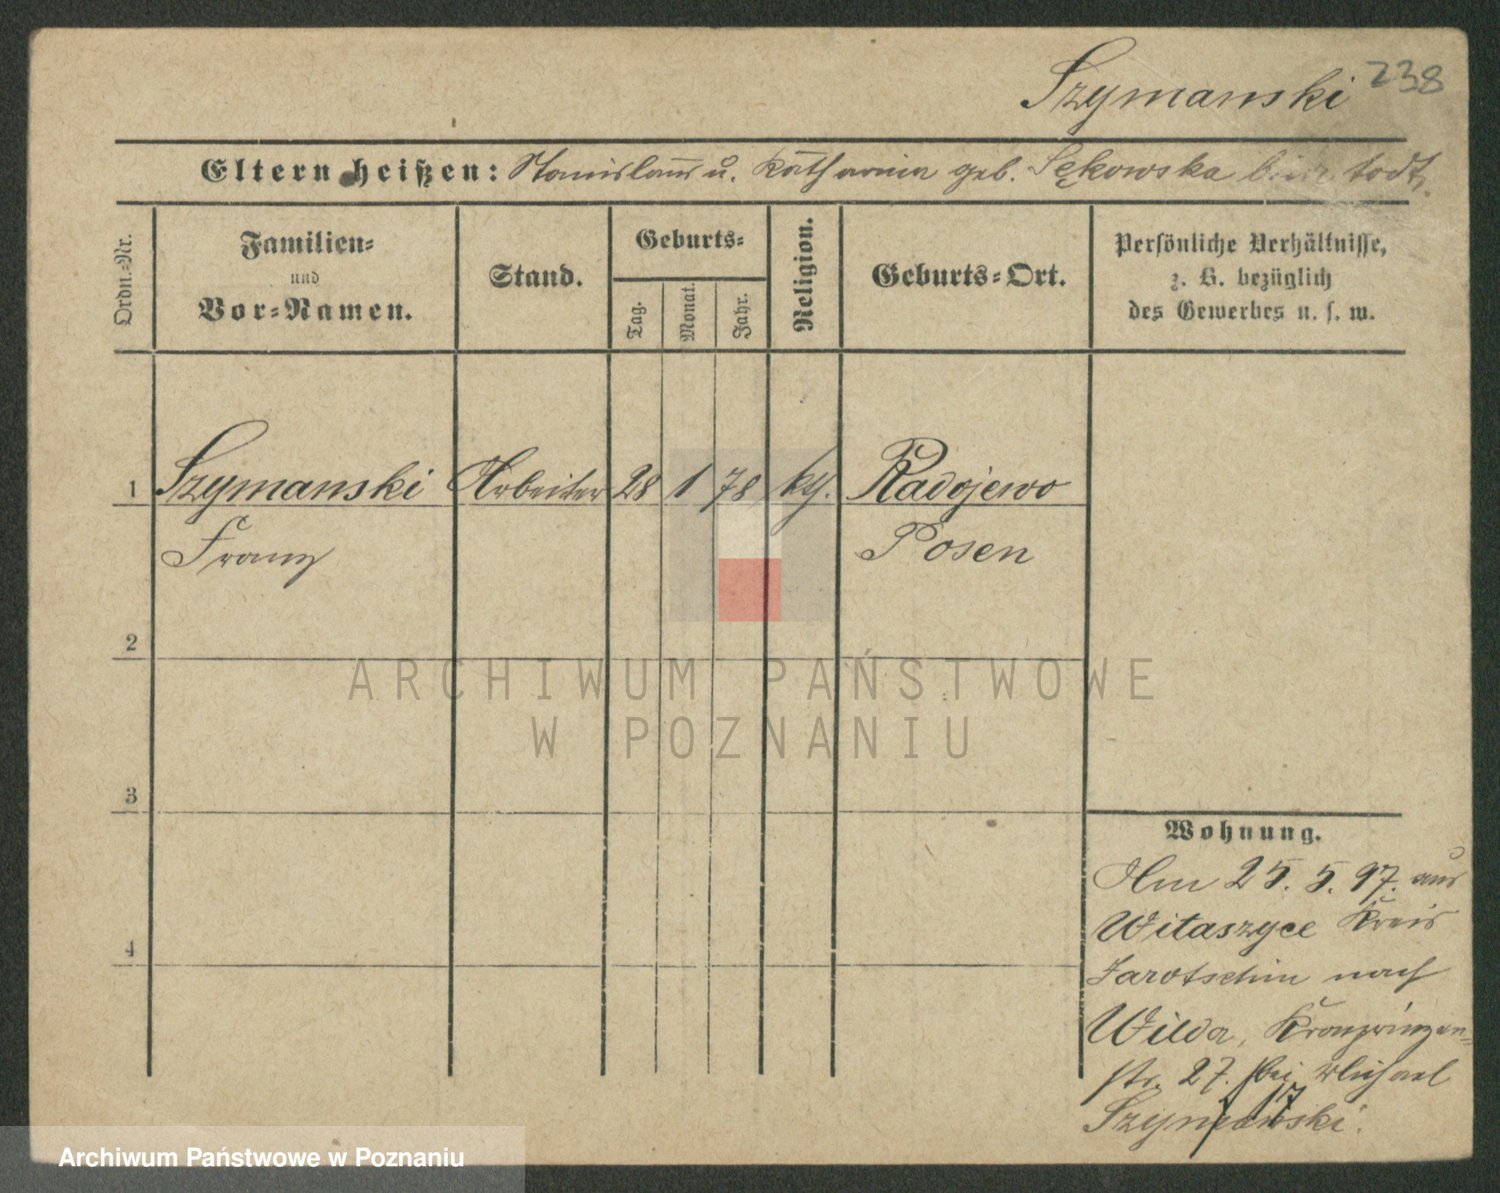 Szymanski 238
Eltern heißen: Stanislaus u. Katharina geb. Sękowska beide todt.
Ordn.-Nr.
Familien-
und
Vor-Namen.
Stand.
Geburts-
Tag.
Monat.
Jahr.
Religion.
Geburts-Ort.
Persönliche Verhältnisse,
z. B. bezüglich
des Gewerbes u. s. w.
1 Szymanski Arbeiter 28 1 78 kth. Radojewo
Franz Posen
2
3
4
Wohnung.
Am 25. 5. 97. aus
Witaszyce Kreis
Jarotschin nach
Wilda, Kronprinzen-
str. 27. bei Michael
Szymanski.
ARCHIWUM PAŃSTWOWE
W POZNANIU
Archiwum Państwowe w Poznaniu